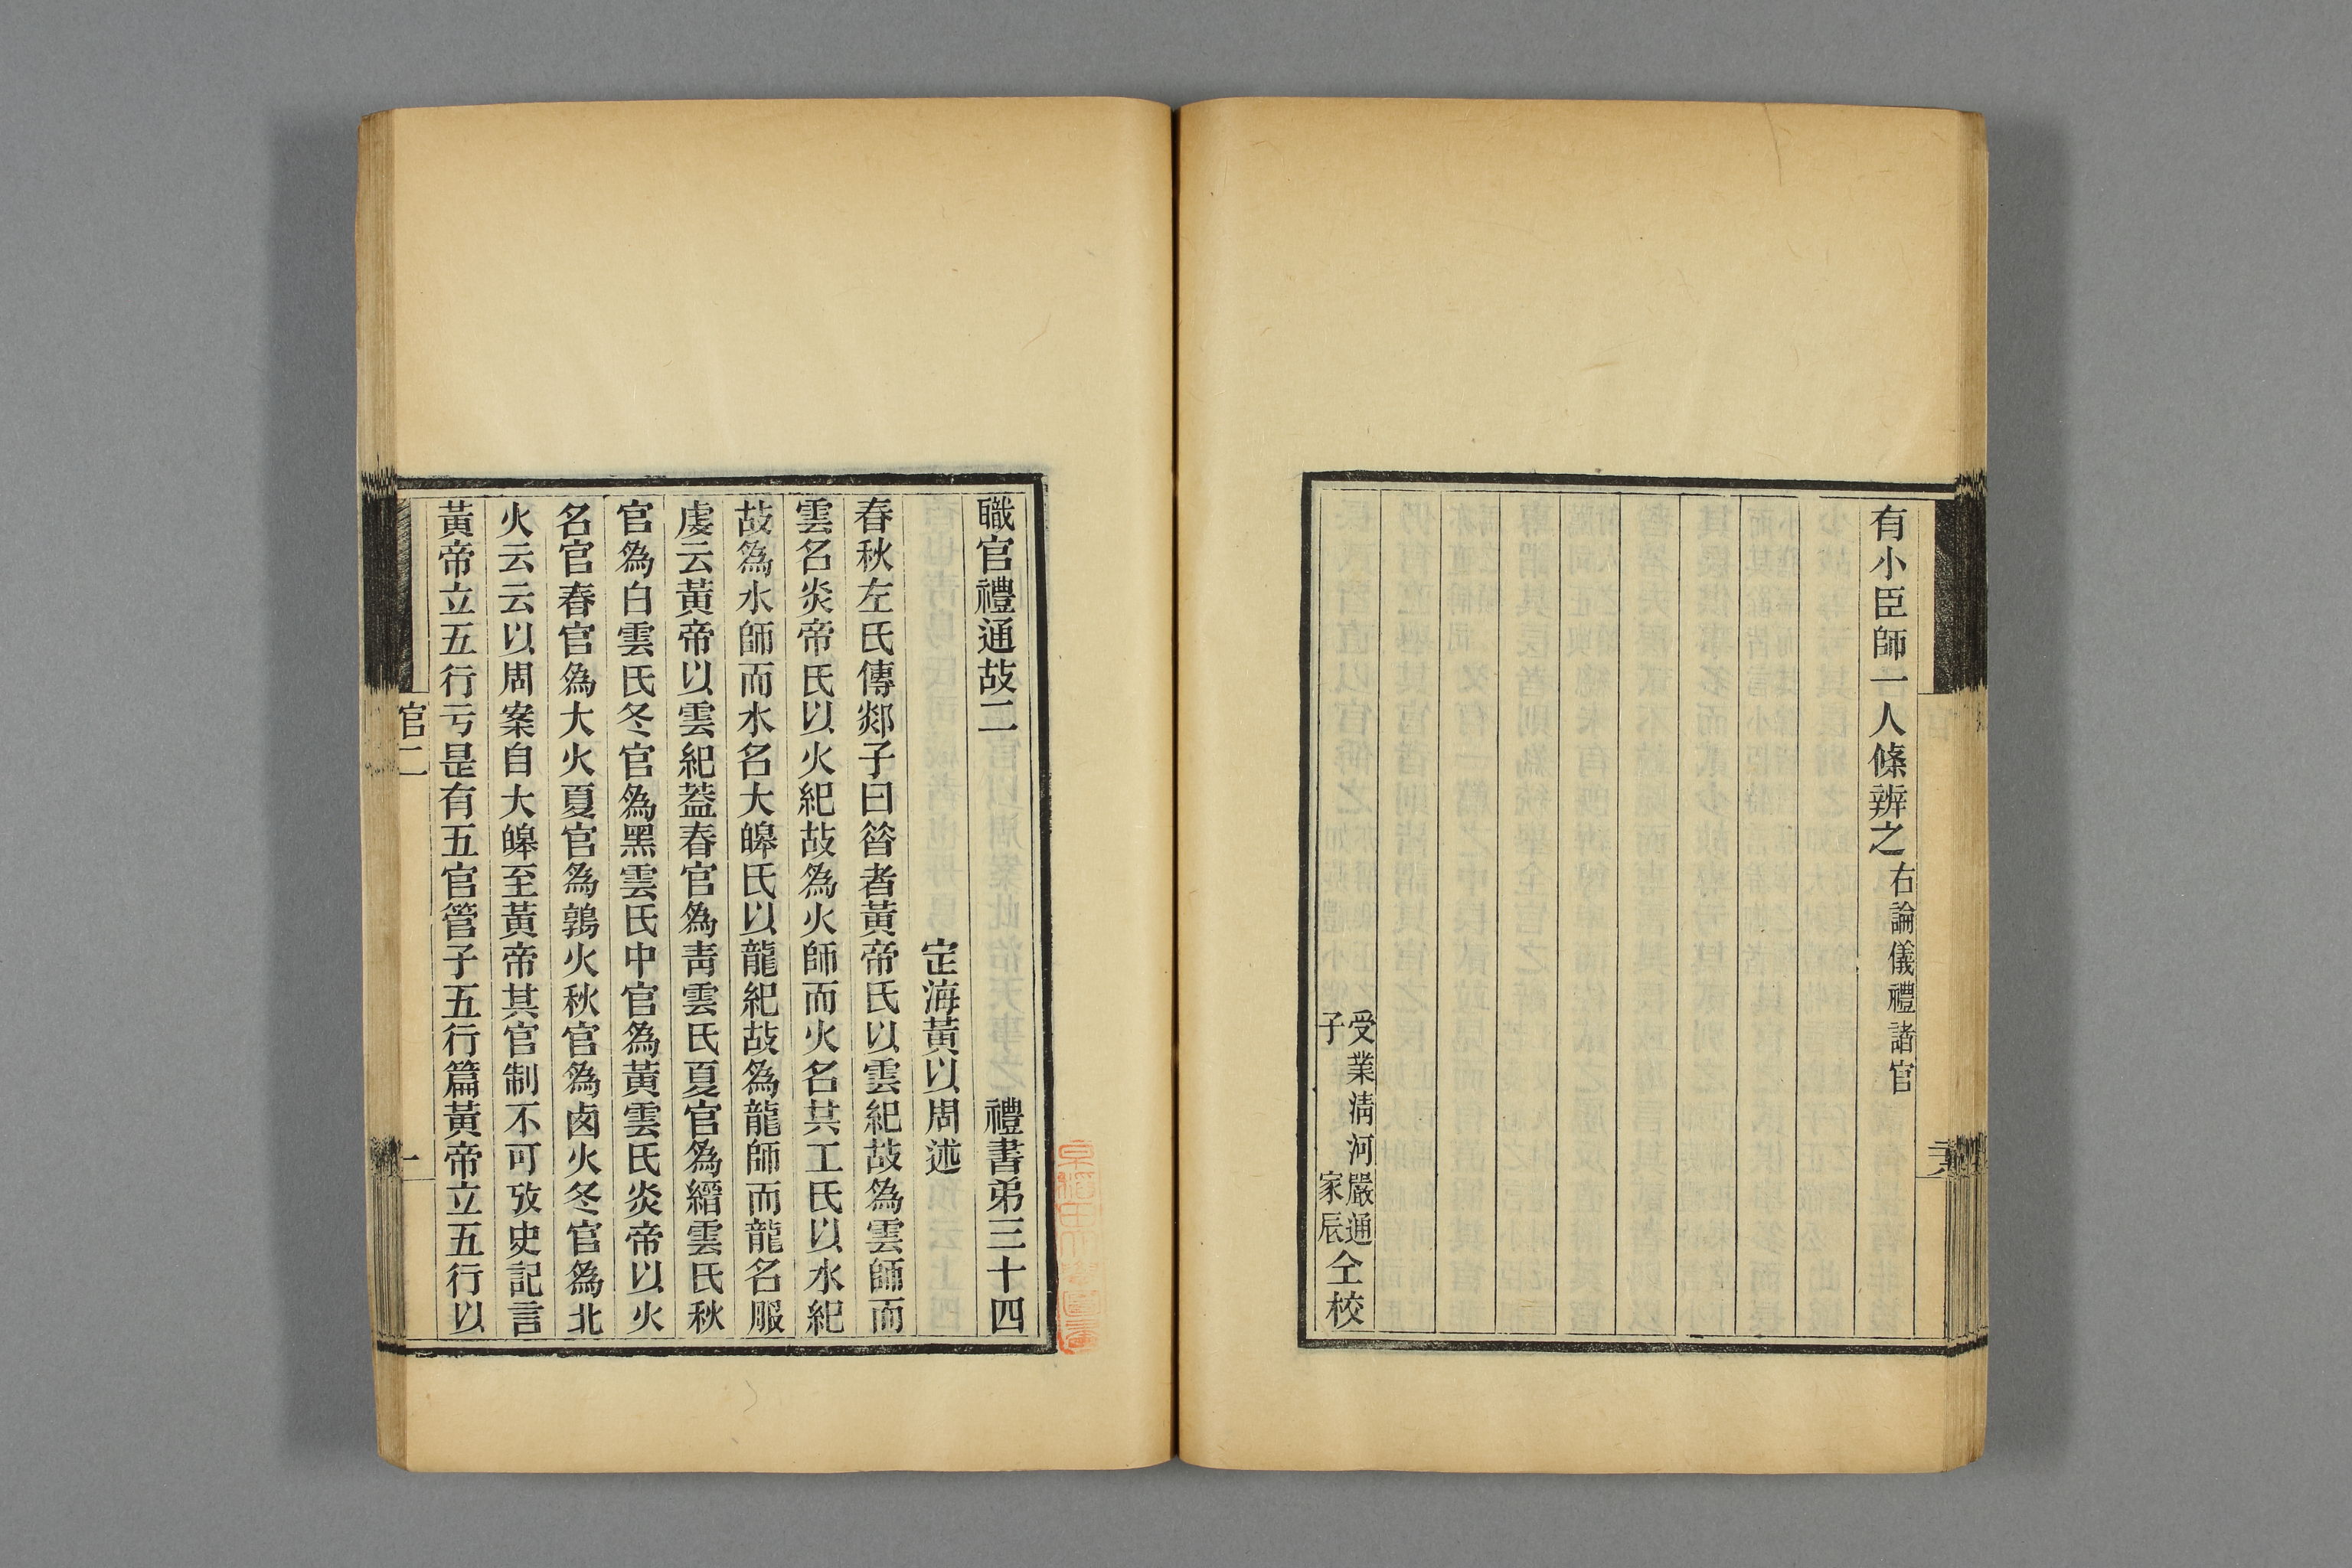 有小臣師一人條辨之右論儀禮諸官
受業淸河嚴通
子家辰
仝校
職官禮通故二
禮書弟三十四
定海黃以周述
春秋左氏傳郯子曰昝者黃帝氏以雲紀故爲雲師而
雲名炎帝氏以火紀故爲火師而火名共工氏以水紀
故爲水師而水名大皞氏以龍紀故爲龍師而龍名服
虔云黃帝以雲紀葢春官爲靑雲氏夏官爲縉雲氏秋
官爲白雲氏冬官爲黑雲氏中官爲黃雲氏炎帝以火
名官春官爲大火夏官爲鶉火秋官爲卤火冬官爲北
火云云以周案自大皞至黃帝其官制不可攷史記言
黃帝立五行亏是有五官管子五行篇黃帝立五行以
官二
一